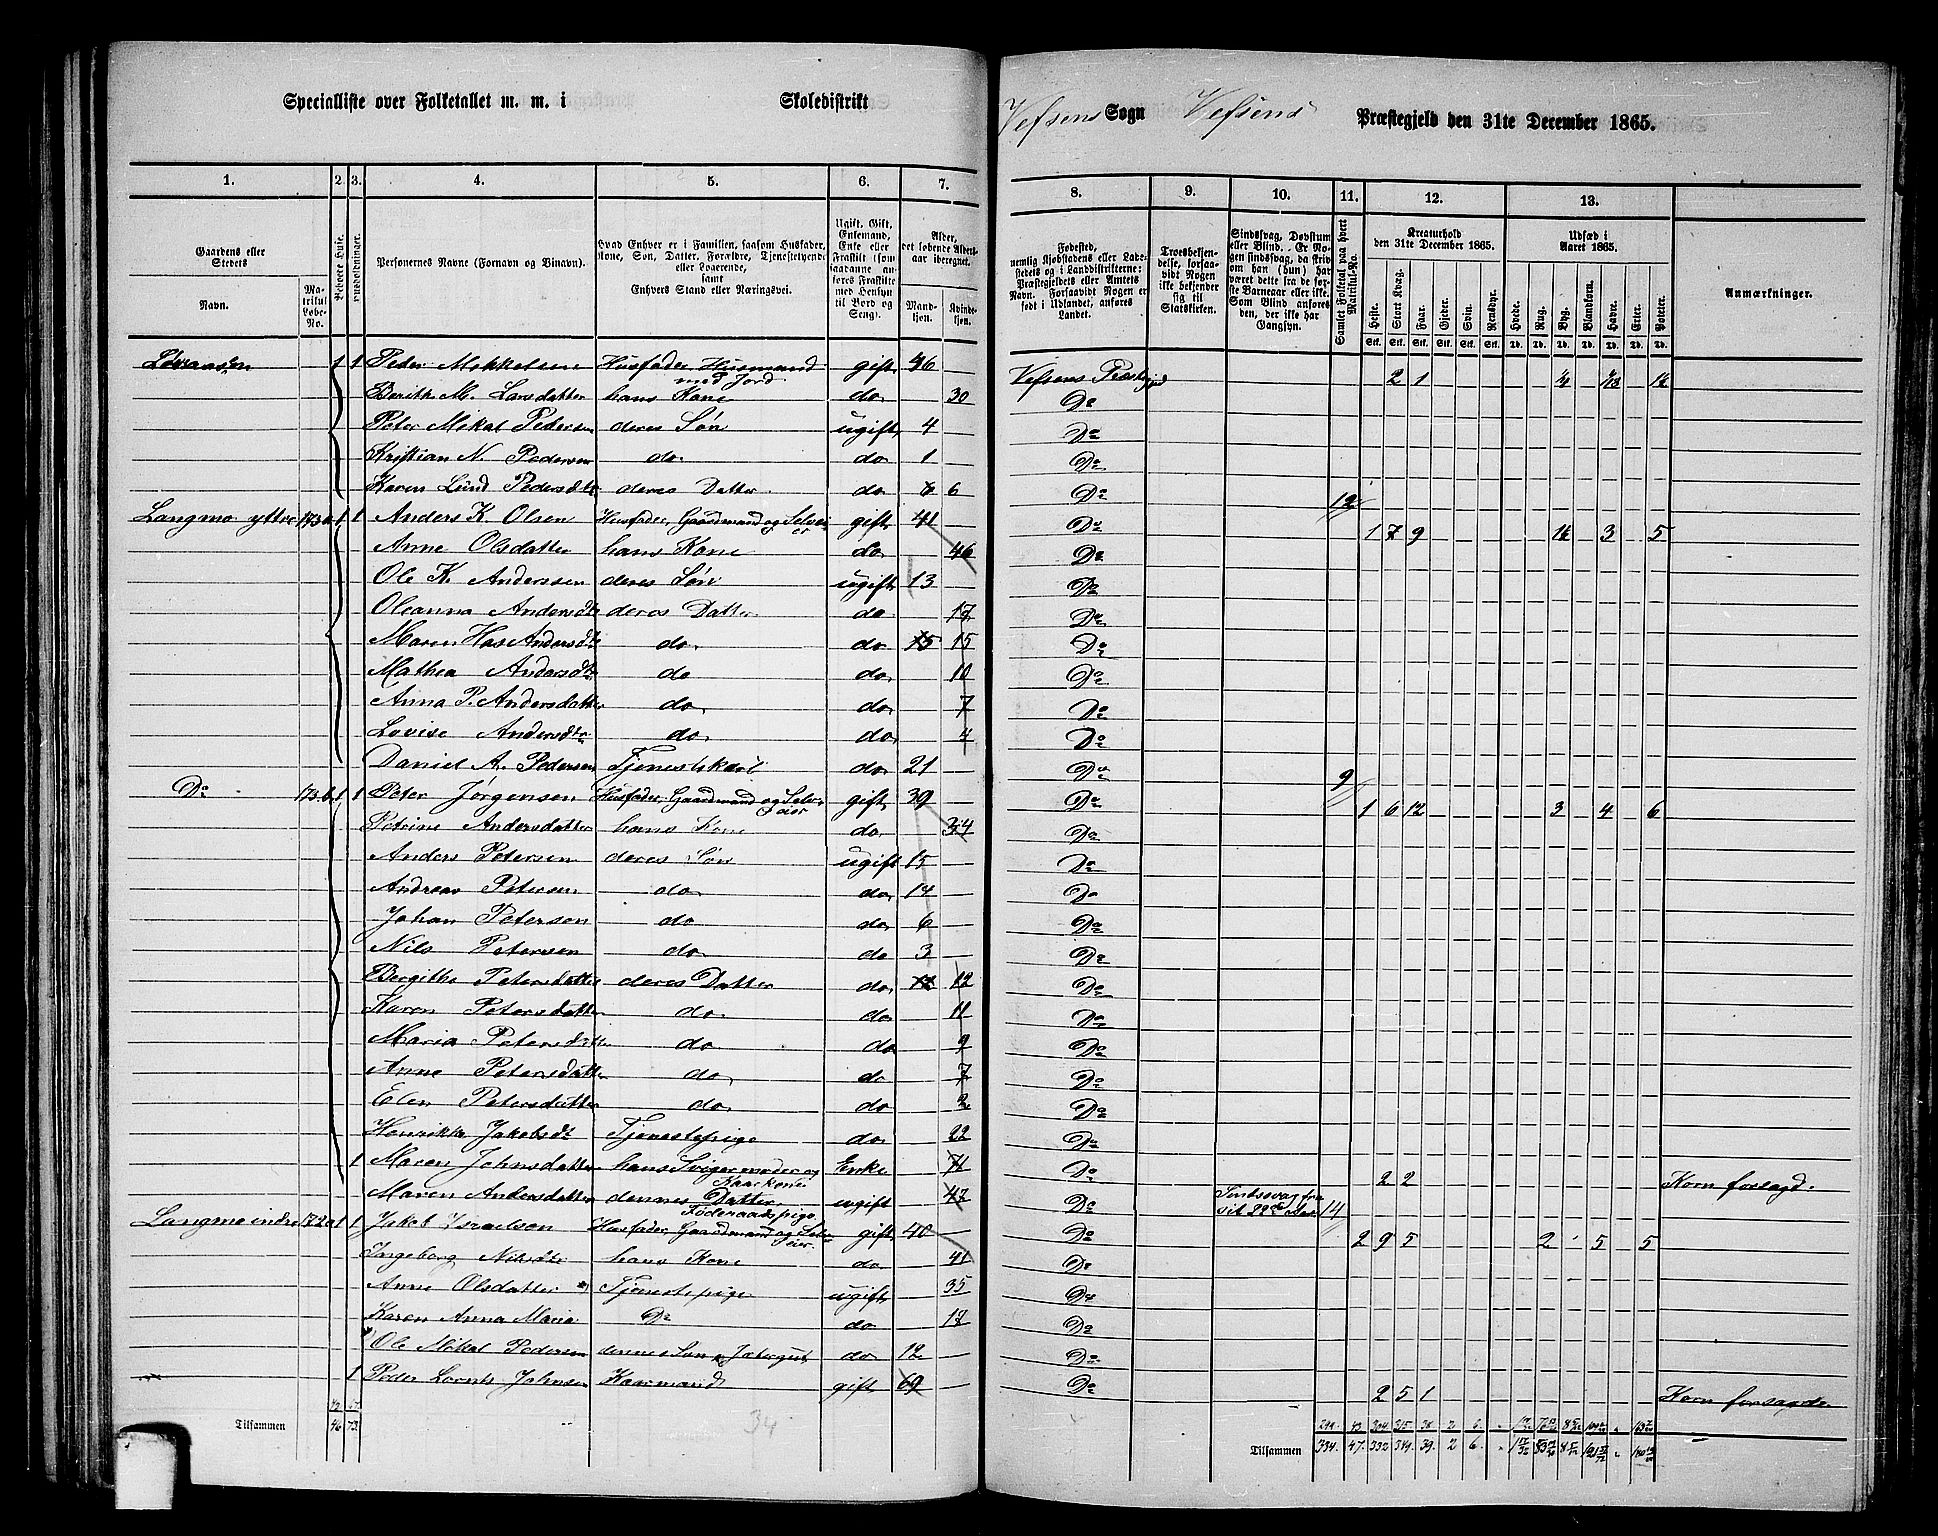 Specialliste over Folketallet m. m. i Skoledistrikt
Vefsens Sogn Vefsens Præstegjeld den 31te December 1865.
1. 2. 3. 4. 5. 6. 7. 8. 9. 10. 11. 12. 13.
Gaardens eller Stedets
Navn.
Matrikul Løbe-No.
Beboede Huse.
Huusholdninger.
Personernes Navne (Fornavn og Binavn).
Hvad Enhver er i Familien, saasom Husfader, Kone, Søn, Datter, Forældre, Tjenestetyende eller Logerende, samt Enhvers Stand eller Næringsvei.
Ugift, Gift, Enkemand, Enke eller Fraskilt
Alder, det løbende Alders-aar iberegnet.
Mandkjøn.
Kvindekjøn.
Fødested,
Kreaturhold den 31te December 1865.
Heste. Stort Kvæg. Faar. Gjeder. Svin. Rensdyr.
Udsæd i Aaret 1865.
Hvede. Rug. Byg. Blandkorn. Havre. Erter. Poteter.
Anmærkninger.
1 1 Peder Mikkelsen Husfader Husmand med Jord gift 46 Vefsens 2 1
Berith M. Larsdatter hans Kone do 30 Do
Peter Mikal Pedersen deres Søn ugift 4 Do
Kristian N. Pedersen do. do 1 Do
Karen Lund Pedersdtr deres Datter do 6 Do 12
Langmo yttre 173a 1 1 Anders K. Olsen Husfader, Gaardmand og Selveier gift 41 Do 1 7 9 3 5
Anne Olsdatter hans Kone do. 46 Do
Ole K. Anderssen deres Søn ugift 13 Do
Oleanna Andersdtr deres Datter do 17 Do
Maren Andersdtr do. do 15 15 Do
Mathea Andersdtr do do. 10 Do
Anna P. Andersdatter do. do. 7 Do
Lovise Andersdtr do. do. 4 Do
Daniel A. Pedersen Tjenestekarl do. 21 Do 9
Do 173b 1 1 Peter Jørgensen Husfader, Gaardmand og Selveier gift 39 Do 1 6 12 3 4 6
Petrine Andersdatter hans Kone do. 34 Do
Anders Petersen deres Søn ugift 15 Do
Andreas Petersen do. do. 14 Do
Johan Petersen do do. 6 Do
Nils Petersen do. do 3 Do
Bergitha Petersdatter deres Datter do. 12 12 Do
Karen Petersdatter do. do. 11 Do
Maria Petersdatter do do 9 Do
Anne Petersdatter do. do 7 Do
Elen Petersdatter do. do 2 Do
Henrikke Jakobsdt Tjenestepige do. 22 Do
1 Maren Johnsdatter hans Svigermoder og Kaarkone Enke 71 Do 2 2 Korn forsagd.
Maren Andersdatter dennes Datter Føderaadspige ugift 47 Do 14
Langmo indre 172a 1 1 Jakob Israelsen Husfader, Gaardmand og Selveier gift 40 Do 2 9 5 2 5 5
Ingeborg Nilsdtr hans Kone do 41 Do
Anne Olsdatter Tjenestepige ugift 35 Do
Karen Anna Maria Do do 17 Do
Ole Mikal Pedersen dennes Søn, Jætergut do 12 Do
1 Peder Lornts Johnsen Kaarmand gift 69 Do 2 5 1 Korn forsagde
Tilsammen 46 73
34
Tilsammen 334. 47. 332 39. 2 6.